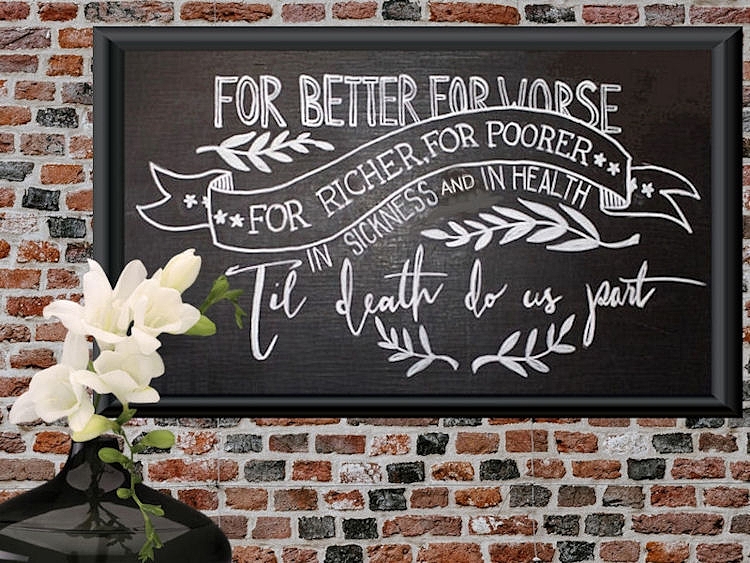 FOR BETTER FOR WORSE
FOR RICHER, FOR POORER
IN SICKNESS AND IN HEALTH
Til death do us part